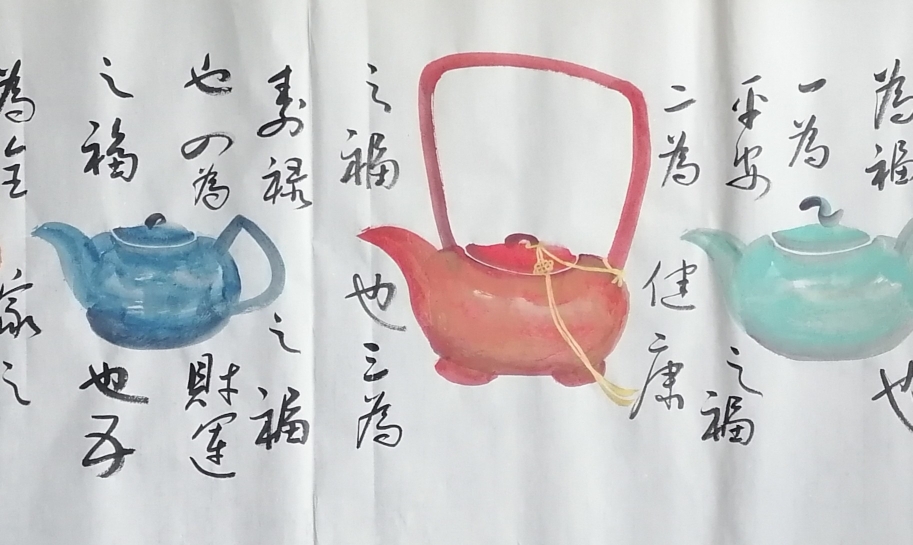 為福也
一為
平安之福
二為健康
之福也三為
壽祿之福
也四為財運
之福也五
為全家之